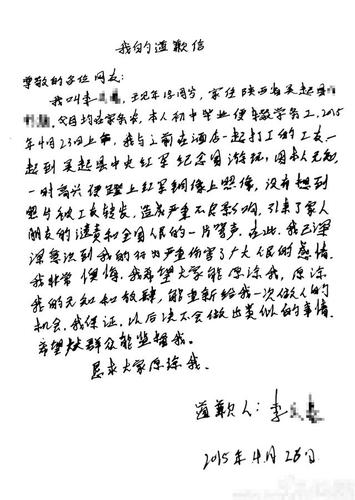 我的道歉信
尊敬的各位网友:
我叫李 现年18周岁,家住陕西省吴起县
父母均在家务农,本人初中毕业便辍学务工,2015
年4月23日上午,我与之前在酒店一起打工的工友一
起到吴起县中央红军纪念园游玩,因本人无知,
一时高兴便蹬上红军铜像上照像,没有想到
照片被工友转发,造成严重不良影响,引来了家人
朋友的谴责和全国人民的一片骂声。在此,我已深
深意识到我的行为严重伤害了广大人民的感情,
我非常懊悔,我希望大家能原谅我,原谅
我的无知和放肆,能重新给我一次做人的
机会,我保证,以后决不会做出类似的事情
希望群众能监督我。
恳求大家原谅我。
道歉人:李
2015年4月26日